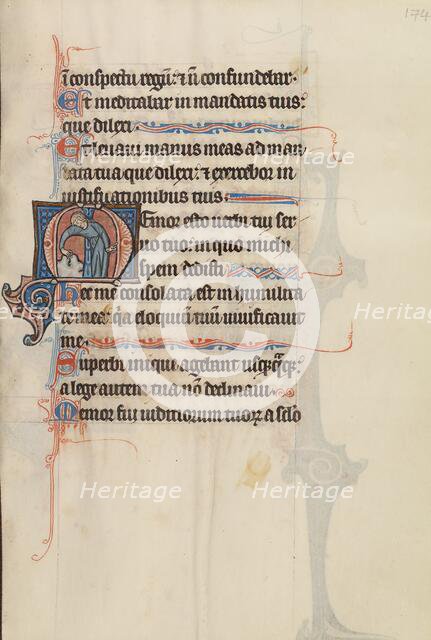 174
i conspectu regum: ⁊ n̄ confundebar.
Et meditabar in mandatis tuis:
que dilexi.
Et leuaui manus meas ad man
data tua que dilexi: ⁊ exercebor in
iustificationibus tuis.
Memor esto uerbi tui ser
uo tuo: in quo michi
spem dedisti
Hec me consolata est in humilita
te mea: q̄a eloquium tuū uiuificauit
me.
Superbi iniq̄ agebant usq̄q̄q̄:
a lege autem tua nō declinaui.
Memor fui iudiciorum tuoꝝ a seclo
Heritage Heritage
Heritage Heritage
Heritage Heritage